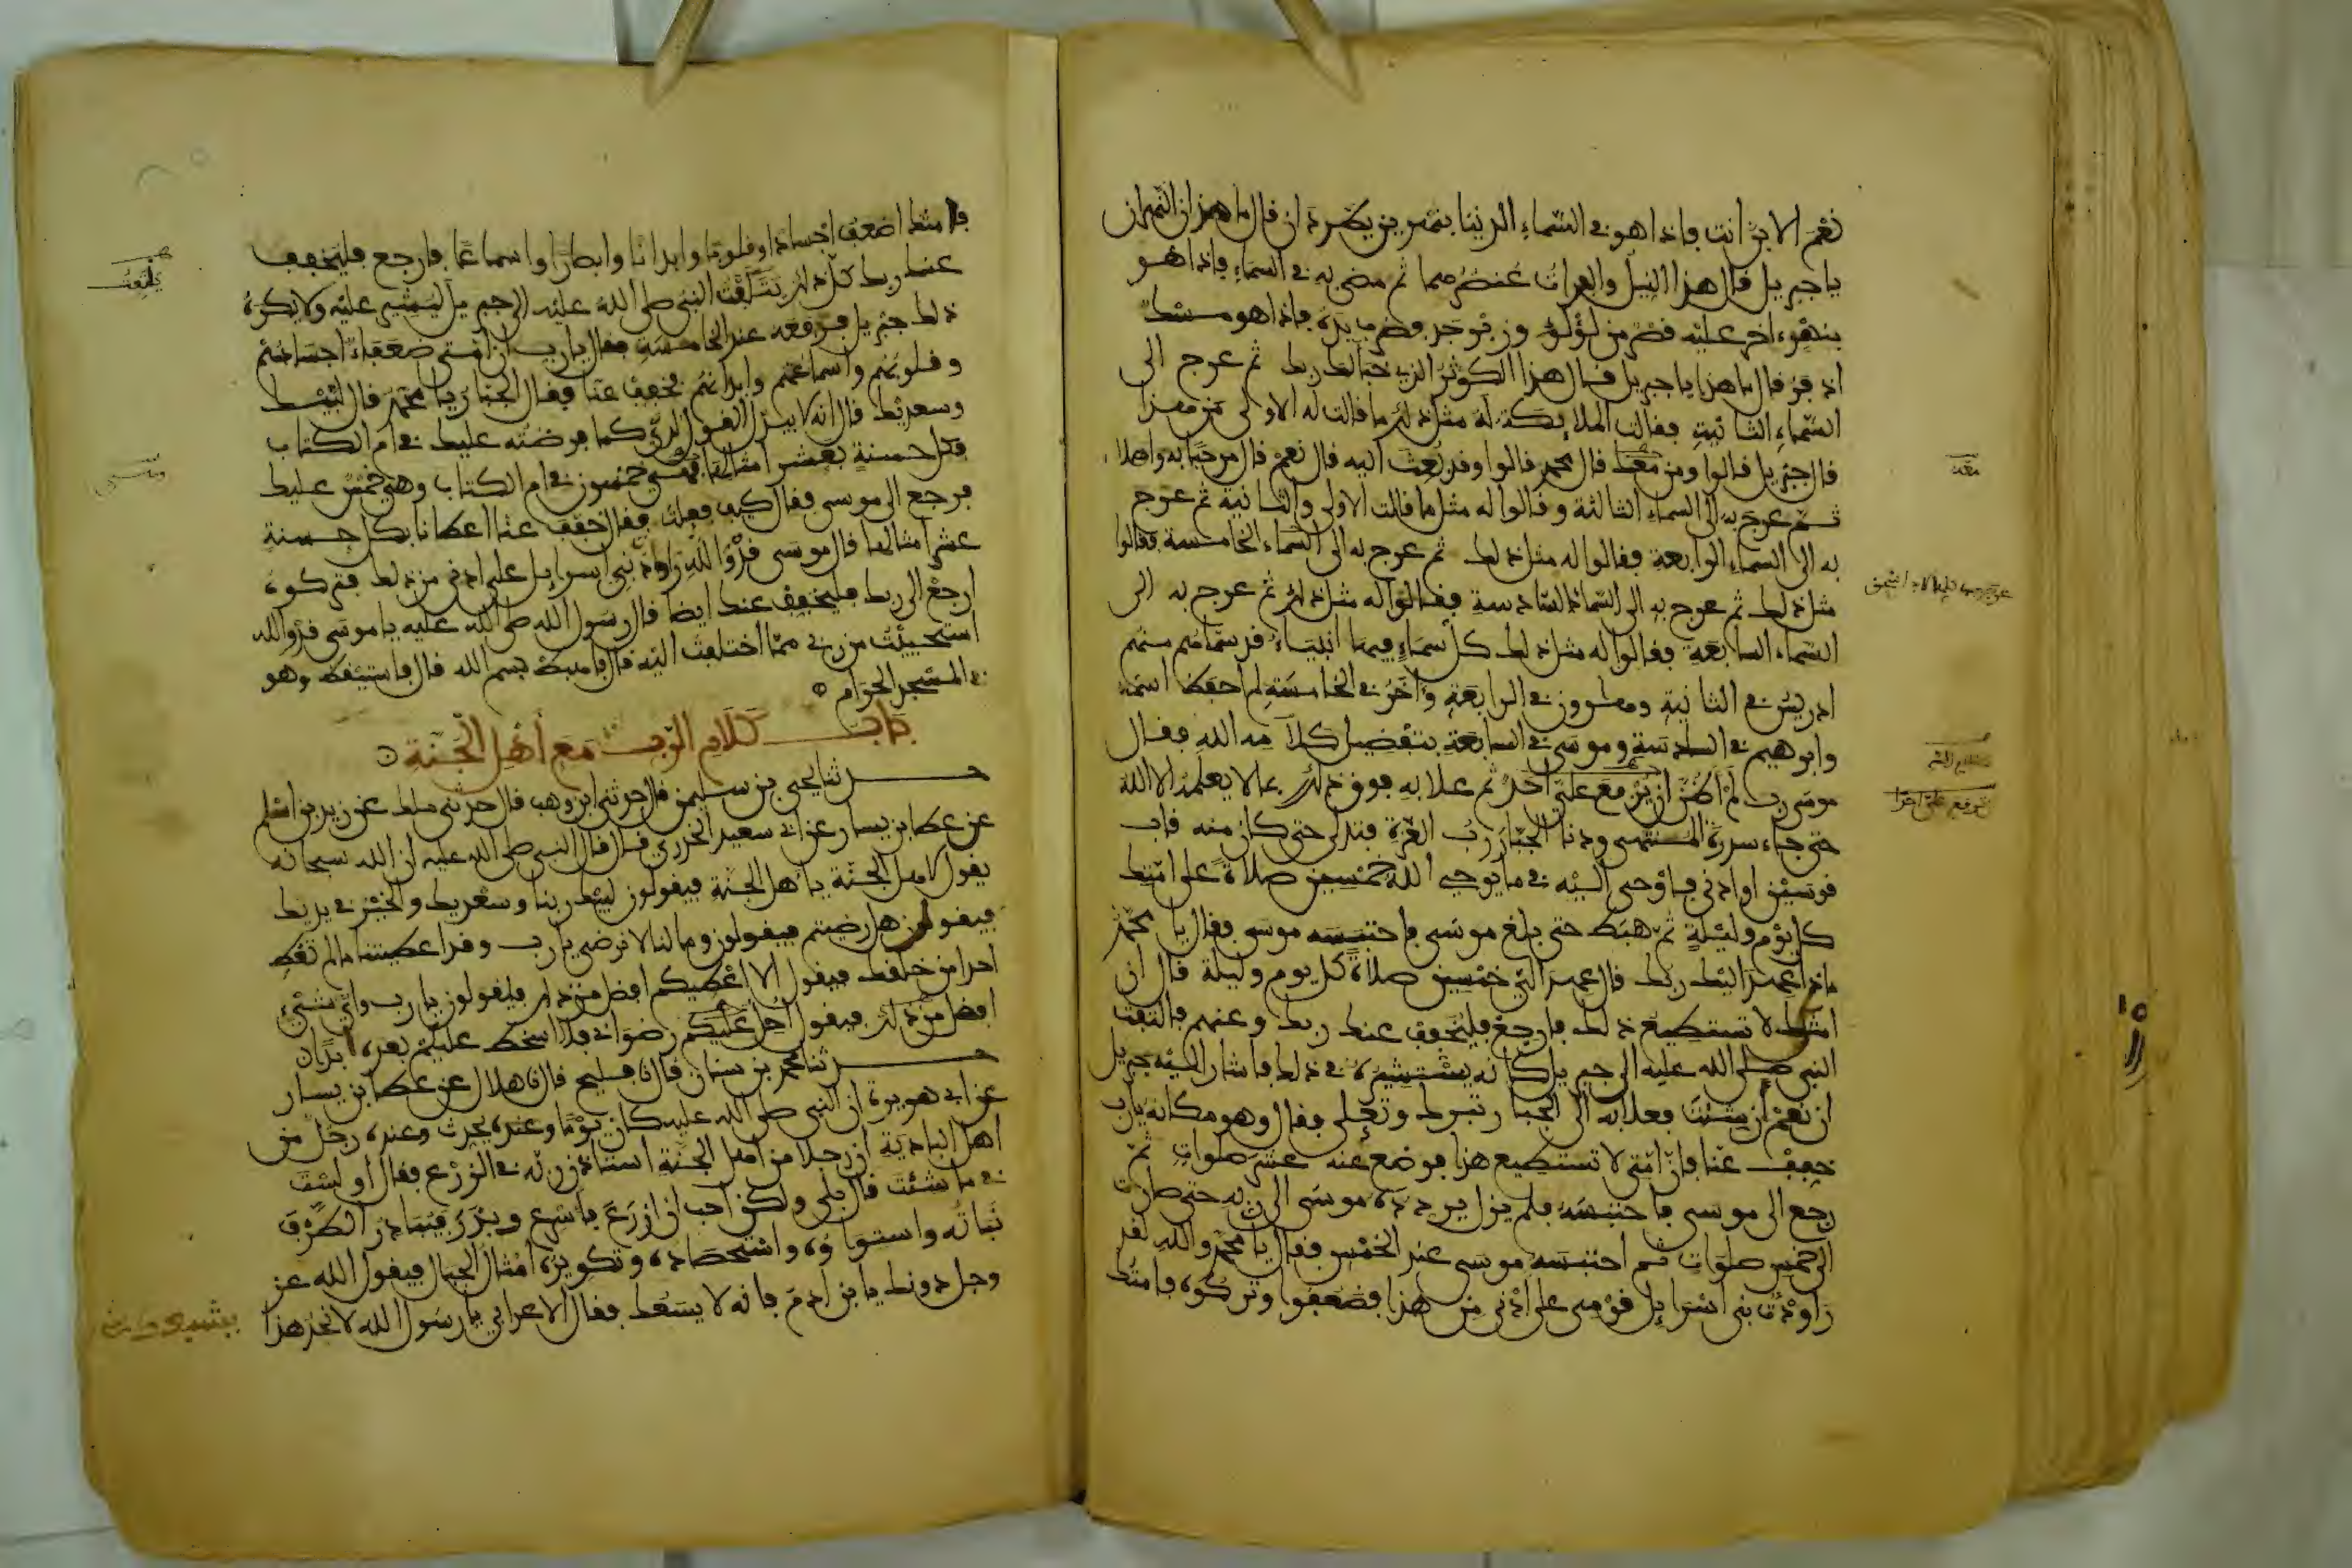 نعم الابن أنت فإذا هو في السماء الدنيا بنهرين يطردان قال ما هذان النهران
يا جبريل قال هذا النيل والفرات عنصرهما ثم مضى به في السماء فإذا هو
بنهر اخر عليه قصر من لؤلؤ وزبرجد فضرب يده فإذا هو مسك
اذفر قال ما هذا يا جبريل قال هذا الكوثر الذي خبا لك ربك ثم عرج الى
السماء الثانية فقالت الملائكة له مثل ذلك ما قالت له الاولى من هذا
قال جبريل قالوا ومن معك قال محمد قالوا وقد بعث اليه قال نعم قال مرحبا به واهلا
ثم عرج به الى السماء الثالثة وقالوا له مثل ما قالت الاولى والثانية ثم عرج
به الى السماء الرابعة فقالوا له مثل ذلك ثم عرج به الى السماء الخامسة فقالوا
مثل ذلك ثم عرج به الى السماء السادسة فقالوا له مثل ذلك ثم عرج به الى
السماء السابعة فقالوا له مثل ذلك كل سماء فيها انبياء قد سماهم منهم
ادريس في الثانية وهارون في الرابعة وآخر في الخامسة لم احفظ اسمه
وابرهيم في السادسة وموسى في السابعة بتفضيل كلام الله فقال
موسى رب لم اظن ان يرفع علي احد ثم علا به فوق ذلك بما لا يعلمه الا الله
حتى جاء سدرة المنتهى ودنا الجبار رب العزة فتدلى حتى كان منه قاب
قوسين او ادنى فاوحى اليه في ما يوحي الله خمسين صلاة على امتك
كل يوم وليلة ثم هبط حتى بلغ موسى فاحتبسه موسى فقال يا محمد
ماذا عهد اليك ربك قال عهد الي خمسين صلاة كل يوم وليلة قال ان
امتك لا تستطيع ذلك فارجع فليخفف عنك ربك وعنهم فالتفت
النبي صلى الله عليه الى جبريل كانه يستشيره في ذلك فاشار اليه جبريل
ان نعم ان شئت فعلا به الى الجبار تبرك وتعلى فقال وهو مكانه يا رب
خفف عنا فان امتي لا تستطيع هذا فوضع عنه عشر صلوات ثم
رجع الى موسى فاحتبسه فلم يزل يردده موسى الى ربه حتى صارت
الى خمس صلوات ثم احتبسه موسى عند الخمس فقال يا محمد والله لقد
راودت بني اسرايل قومي على ادنى من هذا فضعفوا وتركوه فامتك
معه
فامتك اضعف اجسادا وقلوبا وابدانا وابصارا واسماعا فارجع فليخفف
عنك ربك كل ذلك يتلفت النبي صلى الله عليه الى جبريل ليشير عليه ولا يكره
ذلك جبريل فرفعه عند الخامسة فقال يا رب ان امتي ضعفاء اجسادهم
وقلوبهم واسماعهم وابدانهم فخفف عنا فقال الجبار يا محمد قال لبيك
وسعديك قال انه لا يبدل القول لدي كما فرضته عليك في ام الكتاب
فكل حسنة بعشر امثالها فهي خمسون في ام الكتاب وهي خمس عليك
فرجع الى موسى فقال كيف فعلت فقال خفف عنا اعطانا بكل حسنة
عشر امثالها قال موسى قد والله راودت بني اسرايل على ادنى من ذلك فتركوه
ارجع الى ربك فليخفف عنك ايضا قال رسول الله صلى الله عليه يا موسى قد والله
استحييت من ربي مما اختلفت اليه قال فاهبط بسم الله قال فاستيقظ وهو
في المسجد الحرام
باب كلام الرب مع أهل الجنة
حدثنا يحيى بن سليمن قال حدثني ابن وهب قال حدثني ملك عن زيد بن اسلم
عن عطا بن يسار عن ابي سعيد الخدري قال قال النبي صلى الله عليه ان الله سبحانه
يقول لاهل الجنة يا هل الجنة فيقولون لبيك ربنا وسعديك والخير في يديك
فيقول هل رضيتم فيقولون وما لنا لا نرضى يا رب وقد اعطيتنا ما لم تعط
احدا من خلقك فيقول الا اعطيكم افضل من ذلك فيقولون يا رب واي شيء
افضل من ذلك فيقول احل عليكم رضواني فلا اسخط عليكم بعده ابدا
حدثنا محمد بن سنان قال نا فليح قال نا هلال عن عطا بن يسار
عن ابي هريرة ان النبي صلى الله عليه كان يوما وعنده يحدث وعنده رجل من
اهل البادية ان رجلا من اهل الجنة استاذن ربه في الزرع فقال اولست
في ما شئت قال بلى ولكن احب ان ازرع فاسرع وبذر فتبادر الطرف
نباته واستواؤه واستحصاده وتكويره امثال الجبال فيقول الله عز
وجل دونك يا بن ادم فانه لا يسعك فقال الاعرابي يا رسول الله لا تجد هذا